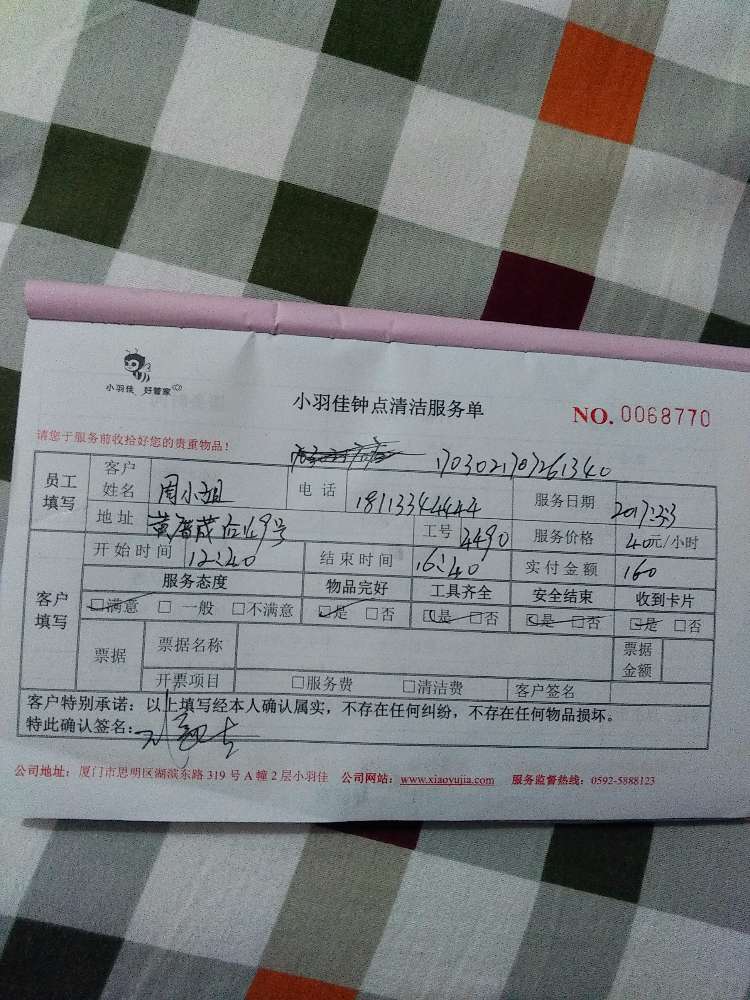 小羽佳 好管家
小羽佳钟点清洁服务单
NO. 0068770
请您于服务前收拾好您的贵重物品！
1703021707261340
员工填写 客户姓名 周小姐 电话 18113344444 服务日期 2017.5.3
地址 号 工号 4490 服务价格 40元/小时
开始时间 12:40 结束时间 16:40 实付金额 160
客户填写 服务态度 物品完好 工具齐全 安全结束 收到卡片
□满意 □一般 □不满意 □是 □否 □是 □否 □是 □否 □是 □否
票据 票据名称 票据金额
开票项目 □服务费 □清洁费 客户签名
客户特别承诺：以上填写经本人确认属实，不存在任何纠纷，不存在任何物品损坏。
特此确认签名：
公司地址：厦门市思明区湖滨东路 319 号 A 幢 2 层小羽佳 公司网站：www.xiaoyujia.com 服务监督热线：0592-5888123